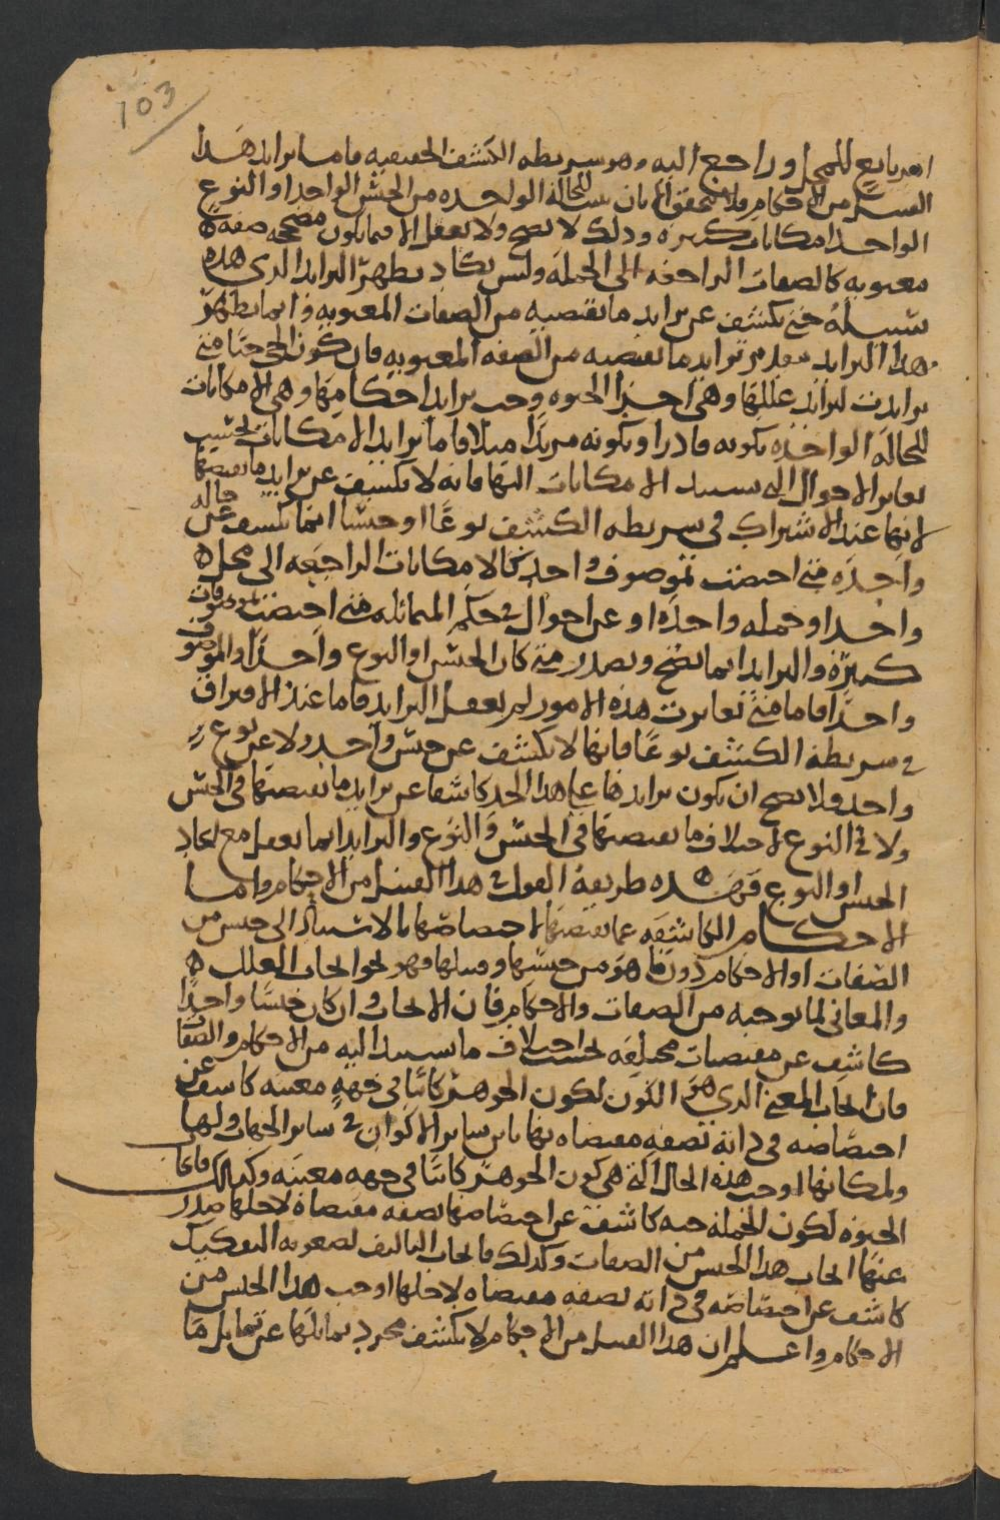 103
امر تابع للمحل وراجع اليه وهو شريطه الكشف الحقيقيه فاما تزايد هذا
القبيل من الاحكام فلا يتحقق الا بان للحالة الواحده من الجنس الواحد او النوع
الواحد امكانات كثيره وذلك لا يصح ولا يعقل الا فيما يكون مصححه صفة
معنويه كالصفات الراجعه الى الجمله وليس يكاد يظهر التزايد الذي هذه
سبيله حتى يكشف عن تزايد ما يقتضيه من الصفات المعنويه وانما يظهر
هذا التزايد بعد تزايد ما يقتضيه من الصفه المعنويه فان كون الحي حيا متى
تزايدت لتزايد عللها وهي اجزا الحيوه وجب تزايد احكامها وهي الامكانات
للحاله الواحده بكونه قادرا وبكونه مريدا مثلا فاما تزايد الامكانات بحسب
تغاير الاحوال التي تستند الامكانات اليها فانه لا يكشف عن تزايد ما يقتضيها
لانها عند الاشتراك في شريطه الكشف نوعا او جنسا انما تكشف عن حاله
واحده متى اختصت بموصوف واحد كالامكانات الراجعه الى محل
واحد او جمله واحده او عن احوال في حكم المتماثله متى اختصت بموصوفات
كثيرة والتزايد انما يصح ويصدر متى كان الجنس او النوع واحدا والموصوف
واحدا فاما متى تغايرت هذه الامور لم يعقل التزايد فاما عند الافتراق
في شريطه الكشف نوعا فانها لا تكشف عن جنس واحد ولا عن نوع
واحد ولا يصح ان يكون تزايدها على هذا الحد كاشفا عن تزايد ما يقتضيها في الجنس
ولا في النوع لاختلاف ما يقتضيها في الجنس والنوع والتزايد انما يعقل مع اتحاد
الجنس او النوع فهذه طريقة القول في هذا القبيل من الاحكام واما
الاحكام الكاشفه عما يقتضيها لاختصاصها بالاستناد الى جنس من
الصفات او الاحكام دون ما هو من جنسها وقبيلها فهو نحو ايجاب العلل
والمعاني لما توجبه من الصفات والاحكام فان الايجاب وان كان جنسا واحدا
كاشف عن مقتضيات مختلفه بحسب اختلاف ما يستند اليه من الاحكام والصفات
فان ايجاب المعنى الذي هو الكون لكون الجوهر كائنا في جهه معينه كاشف عن
اختصاصه في ذاته بصفه مقتضاه بها باين ساير الاكوان في ساير الجهات ولها
ولمكانها اوجب هذه الحال التي هي كون الجوهر كائنا في جهه معينه وكذلك فايجاب
الحيوه لكون الجمله حيه كاشف عن اختصاصها بصفه مقتضاة لاجلها صدر
عنها ايجاب هذا الجنس من الصفات وكذلك فايجاب التاليف لصعوبه التفكيك
كاشف عن اختصاصه في ذاته بصفه مقتضاه لاجلها اوجب هذا الجنس من
الاحكام واعلم ان هذا القبيل من الاحكام لا يكشف مجرد تماثلها عن تماثل ما